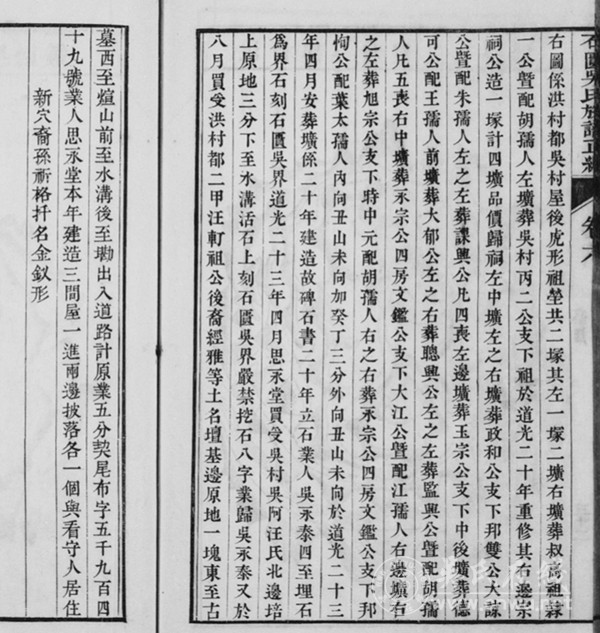 右圖係洪村都吳村屋後虎形祖塋共二塚其左一塚二壙右壙葬叔高祖諱
一公暨配胡孺人左壙葬吳村丙二公支下祖於道光二十年重修其右邊宗
祠公造一塚計四壙品價歸祠左中壙左之右壙葬政和公支下邦雙公大諒
公暨配朱孺人左之左葬謀興公凡四喪左邊壙葬玉宗公支下中後壙葬德
可公配王孺人前壙葬大郁公左之右葬聰興公左之左葬監興公暨配胡孺
人凡五喪右中壙葬永宗公四房文鑑公支下大江公暨配江孺人右邊壙右
之左葬旭宗公支下時中元配胡孺人右之右葬永宗公四房文鑑公支下邦
恂公配葉太孺人內向丑山未向加癸丁三分外向丑山未向於道光二十三
年四月安葬壙係二十年建造故碑石書二十年立石業人吳永泰四至埋石
為界石刻石匱吳界道光二十三年四月思永堂買受吳村吳阿汪氏北邊培
上原地三分下至水溝活石上刻石匱吳界嚴禁挖石八字業歸吳永泰又於
八月買受洪村都二甲汪軒祖公後裔經雅等土名壇基邊原地一塊東至古
墓西至煊山前至水溝後至墈出入道路計原業五分契尾布字五千九百四
十九號業人思永堂本年建造三間屋一進兩邊披落各一個與看守人居住
新穴裔孫祈格扦名金釵形
石匱吳氏族譜正編
卷六